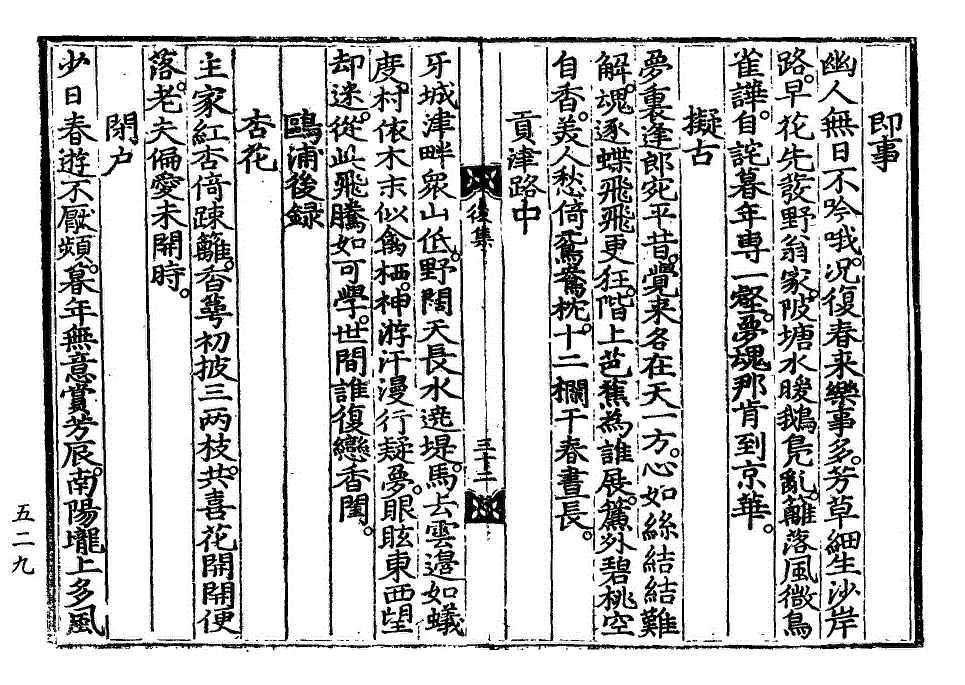 即事
幽人無日不吟哦。况復春来樂事多。芳草細生沙岸
路。早花先發野翁家。陂塘水暖鵝鳧亂。籬落風微鳥
雀譁。自詫暮年専一壑。夢魂那肯到京華。
擬古
夢裏逢郎宛平昔。覺来各在天一方。心如絲結結難
解。魂逐蝶飛飛更狂。階上芭蕉為誰展。簾外碧桃空
自香。美人愁倚鴛鴦枕。十二欄干春晝長。
貢津路中
後集
三十二
牙城津畔衆山低。野闊天長水遶堤。馬去雲邉如蟻
度。村依木末似禽栖。神游汗漫行疑夢。眼眩東西望
却迷。從此飛騰如可學。世間誰復戀香閨。
鷗浦後録
杏花
主家紅杏倚疎籬。香萼初披三两枝。共喜花開開便
落。老夫偏愛未開時。
閉户
少日春遊不厭頻。暮年無意賞芳辰。南陽壠上多風
五二九